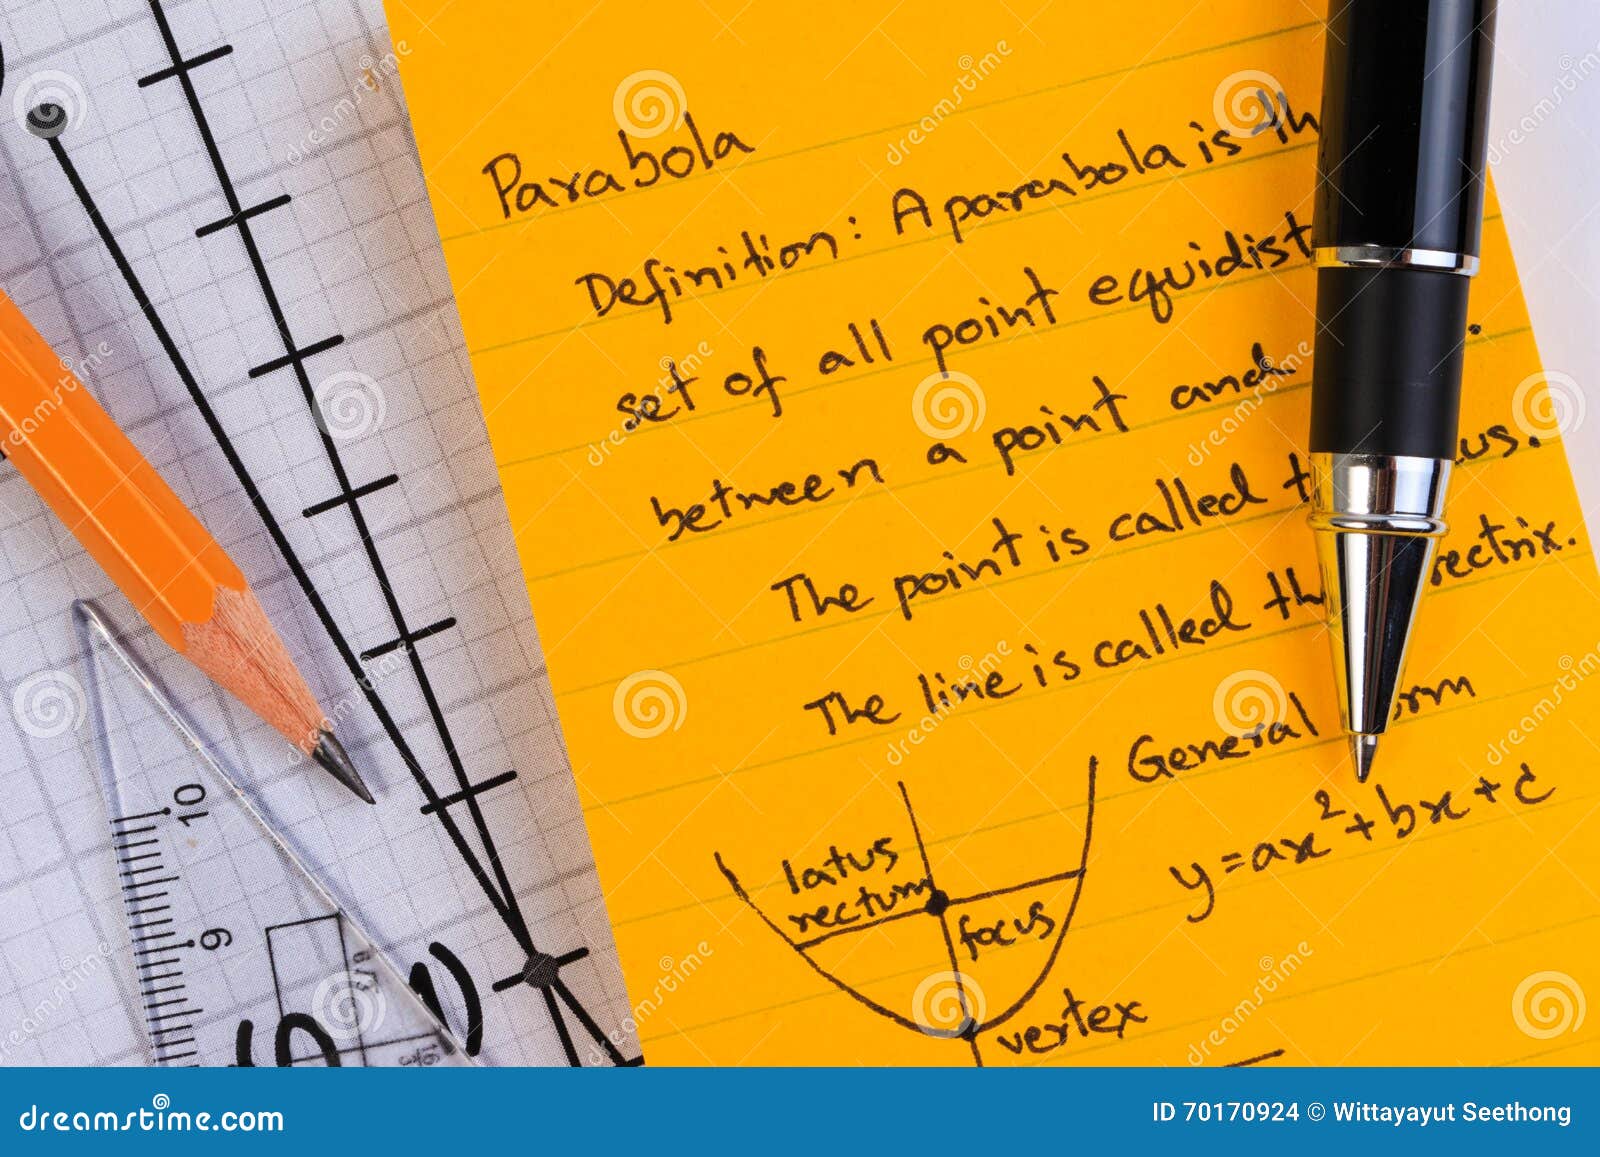 Parabola
Definition: A parabola is th
set of all point equidist
between a point and
The point is called t us.
The line is called th rectrix.
General orm
y=ax²+bx+c
latus
rectum
focus
vertex
10
9
dreamstime.com
ID 70170924 © Wittayayut Seethong
dreamstime